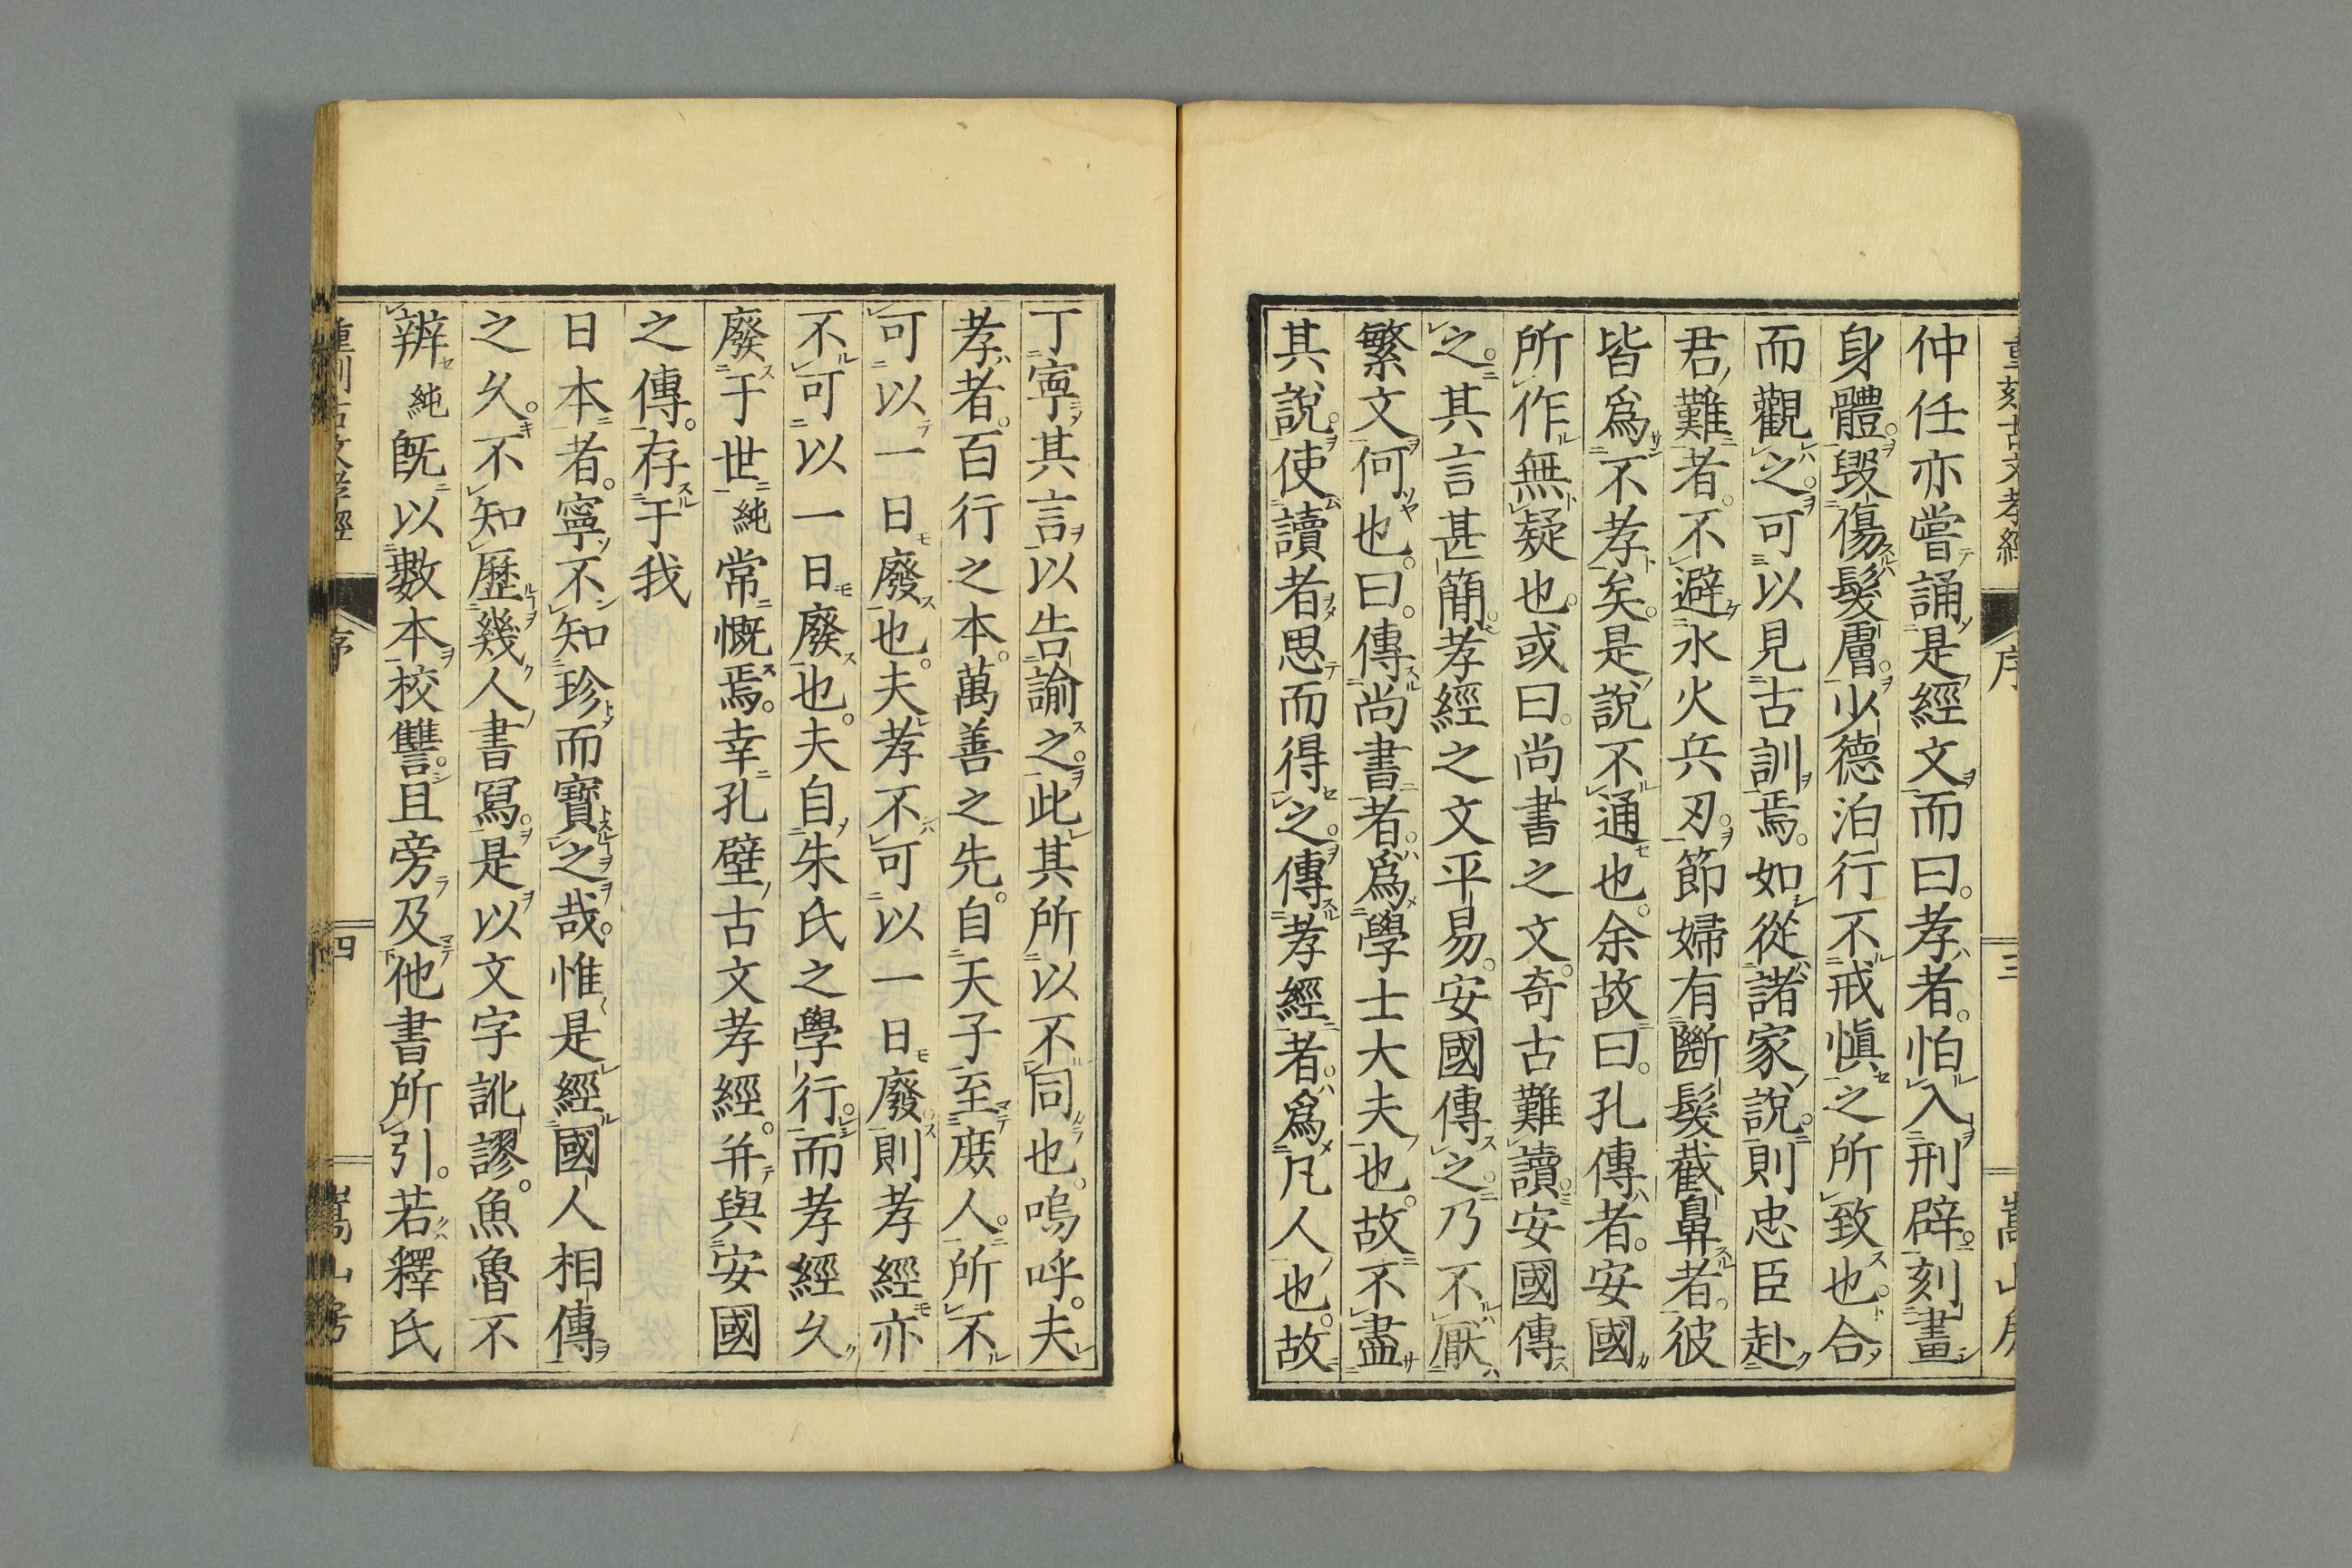 重刻古文孝經 序 三 嵩山房
仲任亦嘗誦是經文而曰。孝者。怕入刑辟。刻畫
身體。毀傷髮膚。少德泊行不戒愼之所致也。合
而觀之。可以見古訓焉。如從諸家說。則忠臣赴
君難者。不避水火兵刃。節婦有斷髮截鼻者。彼
皆爲不孝矣。是說不通也。余故曰。孔傳者。安國
所作無疑也。或曰。尚書之文。奇古難讀。安國傳
之。其言甚簡。孝經之文平易。安國傳之。乃不厭
繁文何也。曰。傳尚書者。爲學士大夫也。故不盡
其說。使讀者思而得之。傳孝經者。爲凡人也。故
丁寧其言以告諭之。此其所以不同也。嗚呼。夫
孝者。百行之本。萬善之先。自天子至庶人。所不
可以一日廢也。夫孝不可以一日廢。則孝經亦
不可以一日廢也。夫自朱氏之學行。而孝經久
廢于世純常慨焉。幸孔壁古文孝經。并與安國
之傳。存于我
日本者。寧不知珍而寶之哉。惟是經國人相傳
之久。不知歷幾人書寫。是以文字訛謬。魚魯不
辨純旣以數本校讐。且旁及他書所引。若釋氏
重刻古文孝經 序 四 嵩山房